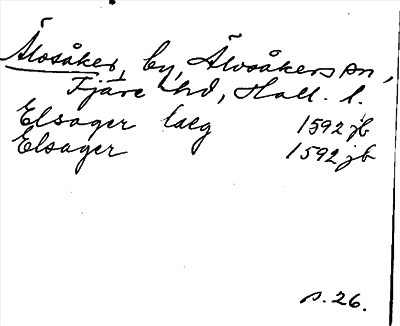 Älvsåker, by, Älvsåkers sn,
Fjäre hd, Hall. l.
Elsager laeg 1592 jb
Elsager 1592 jb
s. 26.